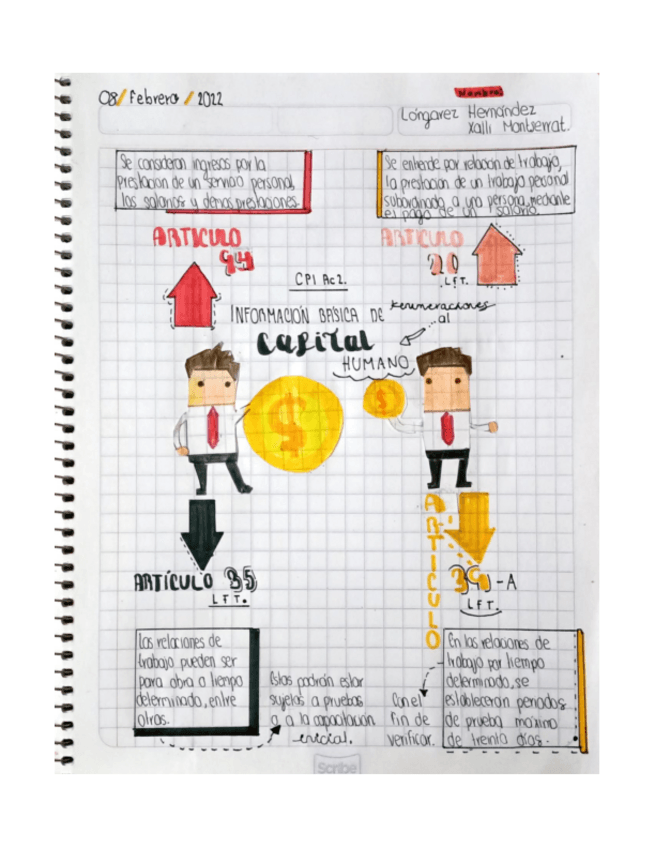 08/Febrero/2022
Nombre:
Longarez Hernández
Xalli Montserrat.
Se consideran ingresos por la
prestacion de un servicio personal,
los salarios y demas prestaciones.
Se entiende por relacion de trabajo,
la prestacion de un trabajo personal
subordinado a una persona, mediante
el pago de un salario.
ARTICULO
94
ARTICULO
20
LFT.
CPI Ac2.
INFORMACIÓN BASICA DE
Remuneraciones
al
Capital
HUMANO
$
$
ARTÍCULO 35
LFT.
ARTICULO
39-A
LFT.
Las relaciones de
trabajo pueden ser
para obra o tiempo
determinado, entre
otras.
Estas podrán estar
sujetas a pruebas
o a la capacitación
inicial.
Con el
fin de
verificar.
En las relaciones de
trabajo por tiempo
determinado, se
estableceran periodos
de prueba maximo
de treinta días.
Scribe